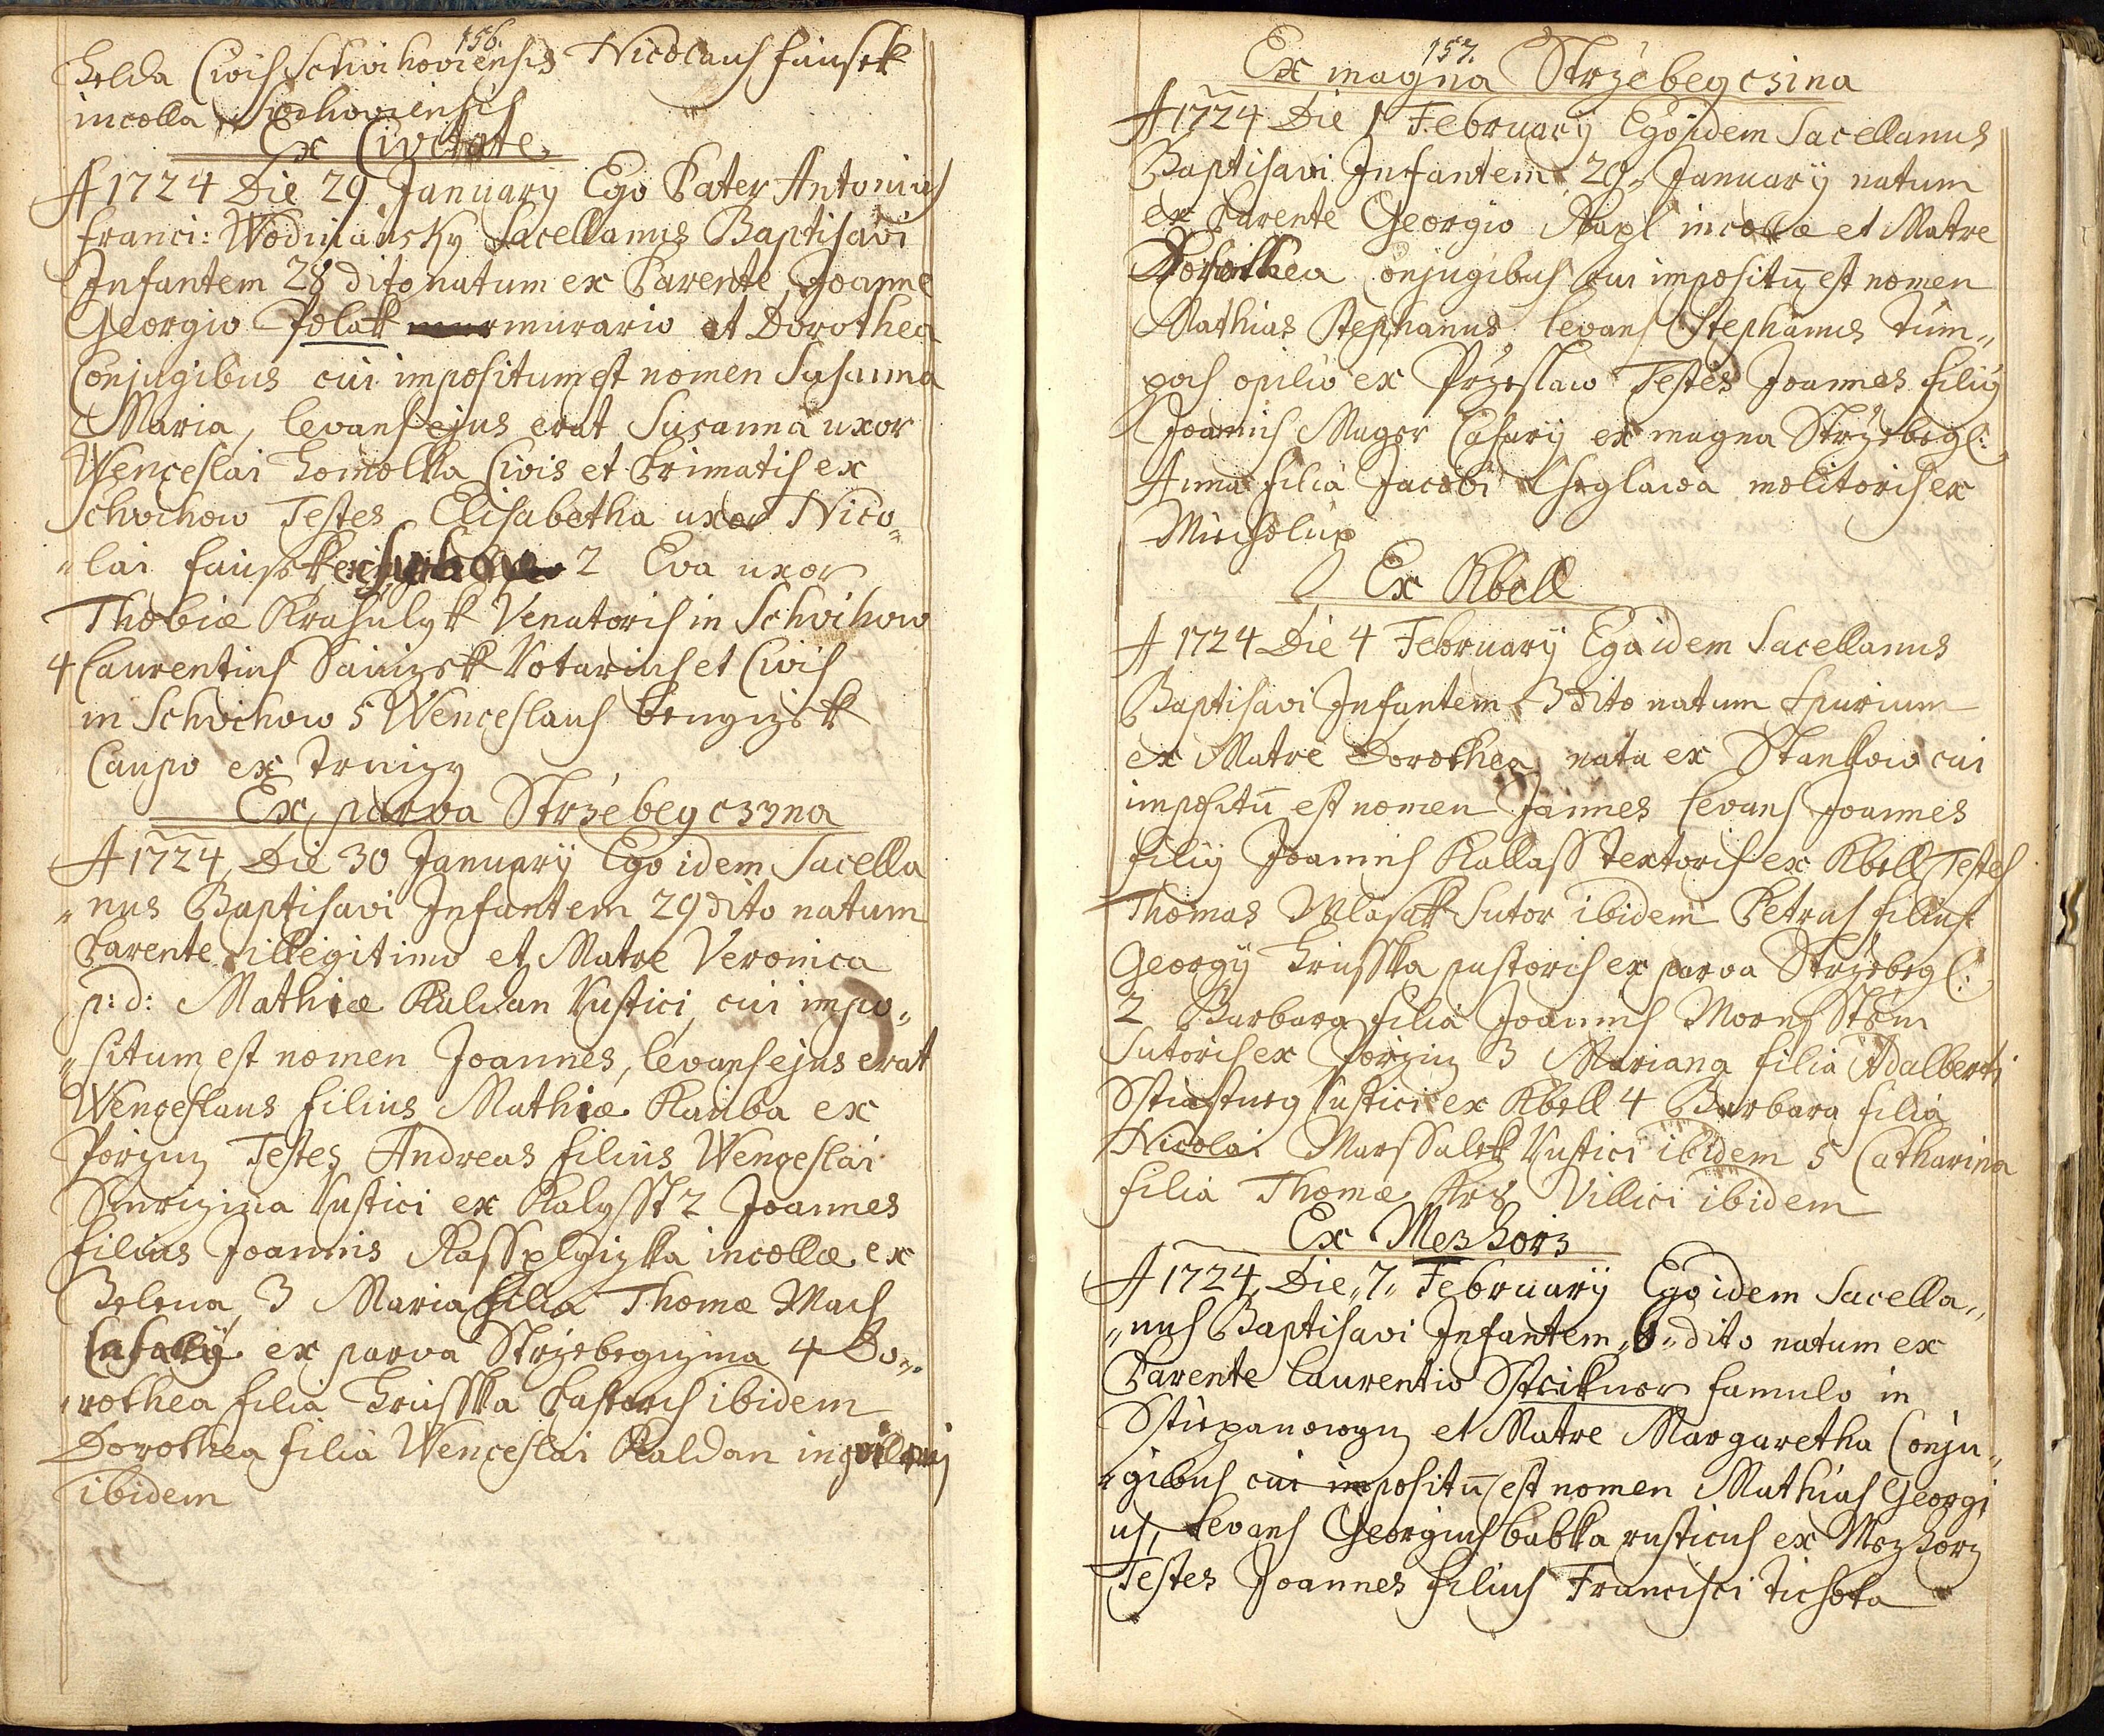 156.
Helda Civis Schvihoviensis Nicolaus
incolla
Ex Civitate
A 1724 Die 29 January Ego Pater Antonius
Franci: Wodniansky Sacellanus Baptisavi
Infantem 28 dito natum ex Parente Joanne
Georgio Polak murario et Dorothea
Conjugibus cui impositum est nomen Susanna
Maria, levans ejus erat Susanna uxor
Wenceslai Homolka Civis et Primatis ex
Schvihow Testes Elisabetha uxor Nico„
„lai 2 Eva uxor
Thobiæ Krahulyk Venatoris in Schvihow
4 Laurentius Notarius et Civis
in Schvihow 5 Wenceslaus
Caupo ex
Ex parva Strzebeyczyna
A 1724 Die 30 January Ego idem Sacella
„nus Baptisavi Infantem 29 dito natum
Parente illegitimo et Matre Veronica
p: d: Mathiæ Kaldan Rustici, cui impo„
„situm est nomen Joannes, levans ejus erat
Wenceslaus filius Mathiæ Kauba ex
Testes Andreas filius Wenceslai
Rustici ex 2 Joannes
filius Joannis incollæ ex
3 Maria filia Thomæ Mach
Casary ex parva 4 Do„
„rothea filia Hrusska Pastoris ibidem
Dorothea filia Wenceslai Kaldan
ibidem
157.
Ex magna Strzebegcsina
A 1724 Die 1 February Ego idem Sacellanus
Baptisavi Infantem 29„ January natum
ex Parente Georgio incollæ et Matre
Dorothea Conjugibus cui impositū est nomen
Mathias Stephanus, levans Stephanus Tum„
„pach opilio ex Przeslaw Testes Joannes filiӳ
Joannis Mager Casary ex magna Strzebegc:
Anna filia Jacobi molitoris ex
Miecholup
Ex Kbell
A 1724 Die 4 February Ego idem Sacellanus
Baptisavi Infantem 3 dito natum Spurium
ex Matre Dorothea nata ex Stankow cui
impositū est nomen Jannes levans Joannes
filiӳ Joannis Kallass textoris ex Kbell Testes
Thomas Mlasak Sutor ibidem Petrus filius
Georgӳ Hrusska pastoris ex parva Strzebegc:
2 Barbara filia Joannis
Sutoris ex 3 Mariana filia Adalberti
Rustici ex Kbell 4 Barbara filia
Nicolai Marssalek Rustici ibidem 5 Catharina
filia Thomæ Villici ibidem
Ex Mezhorz
A 1724 Die „7„ February Ego idem Sacella„
„nus Baptisavi Infantem „6„ dito natum ex
Parente Laurentio famulo in
et Matre Margaretha Conju„
„gibus cui impositū est nomen Mathias Georgi
us, levans Georgius babka rusticus ex Mezhorz
Testes Joannes filius Francisci Tichota